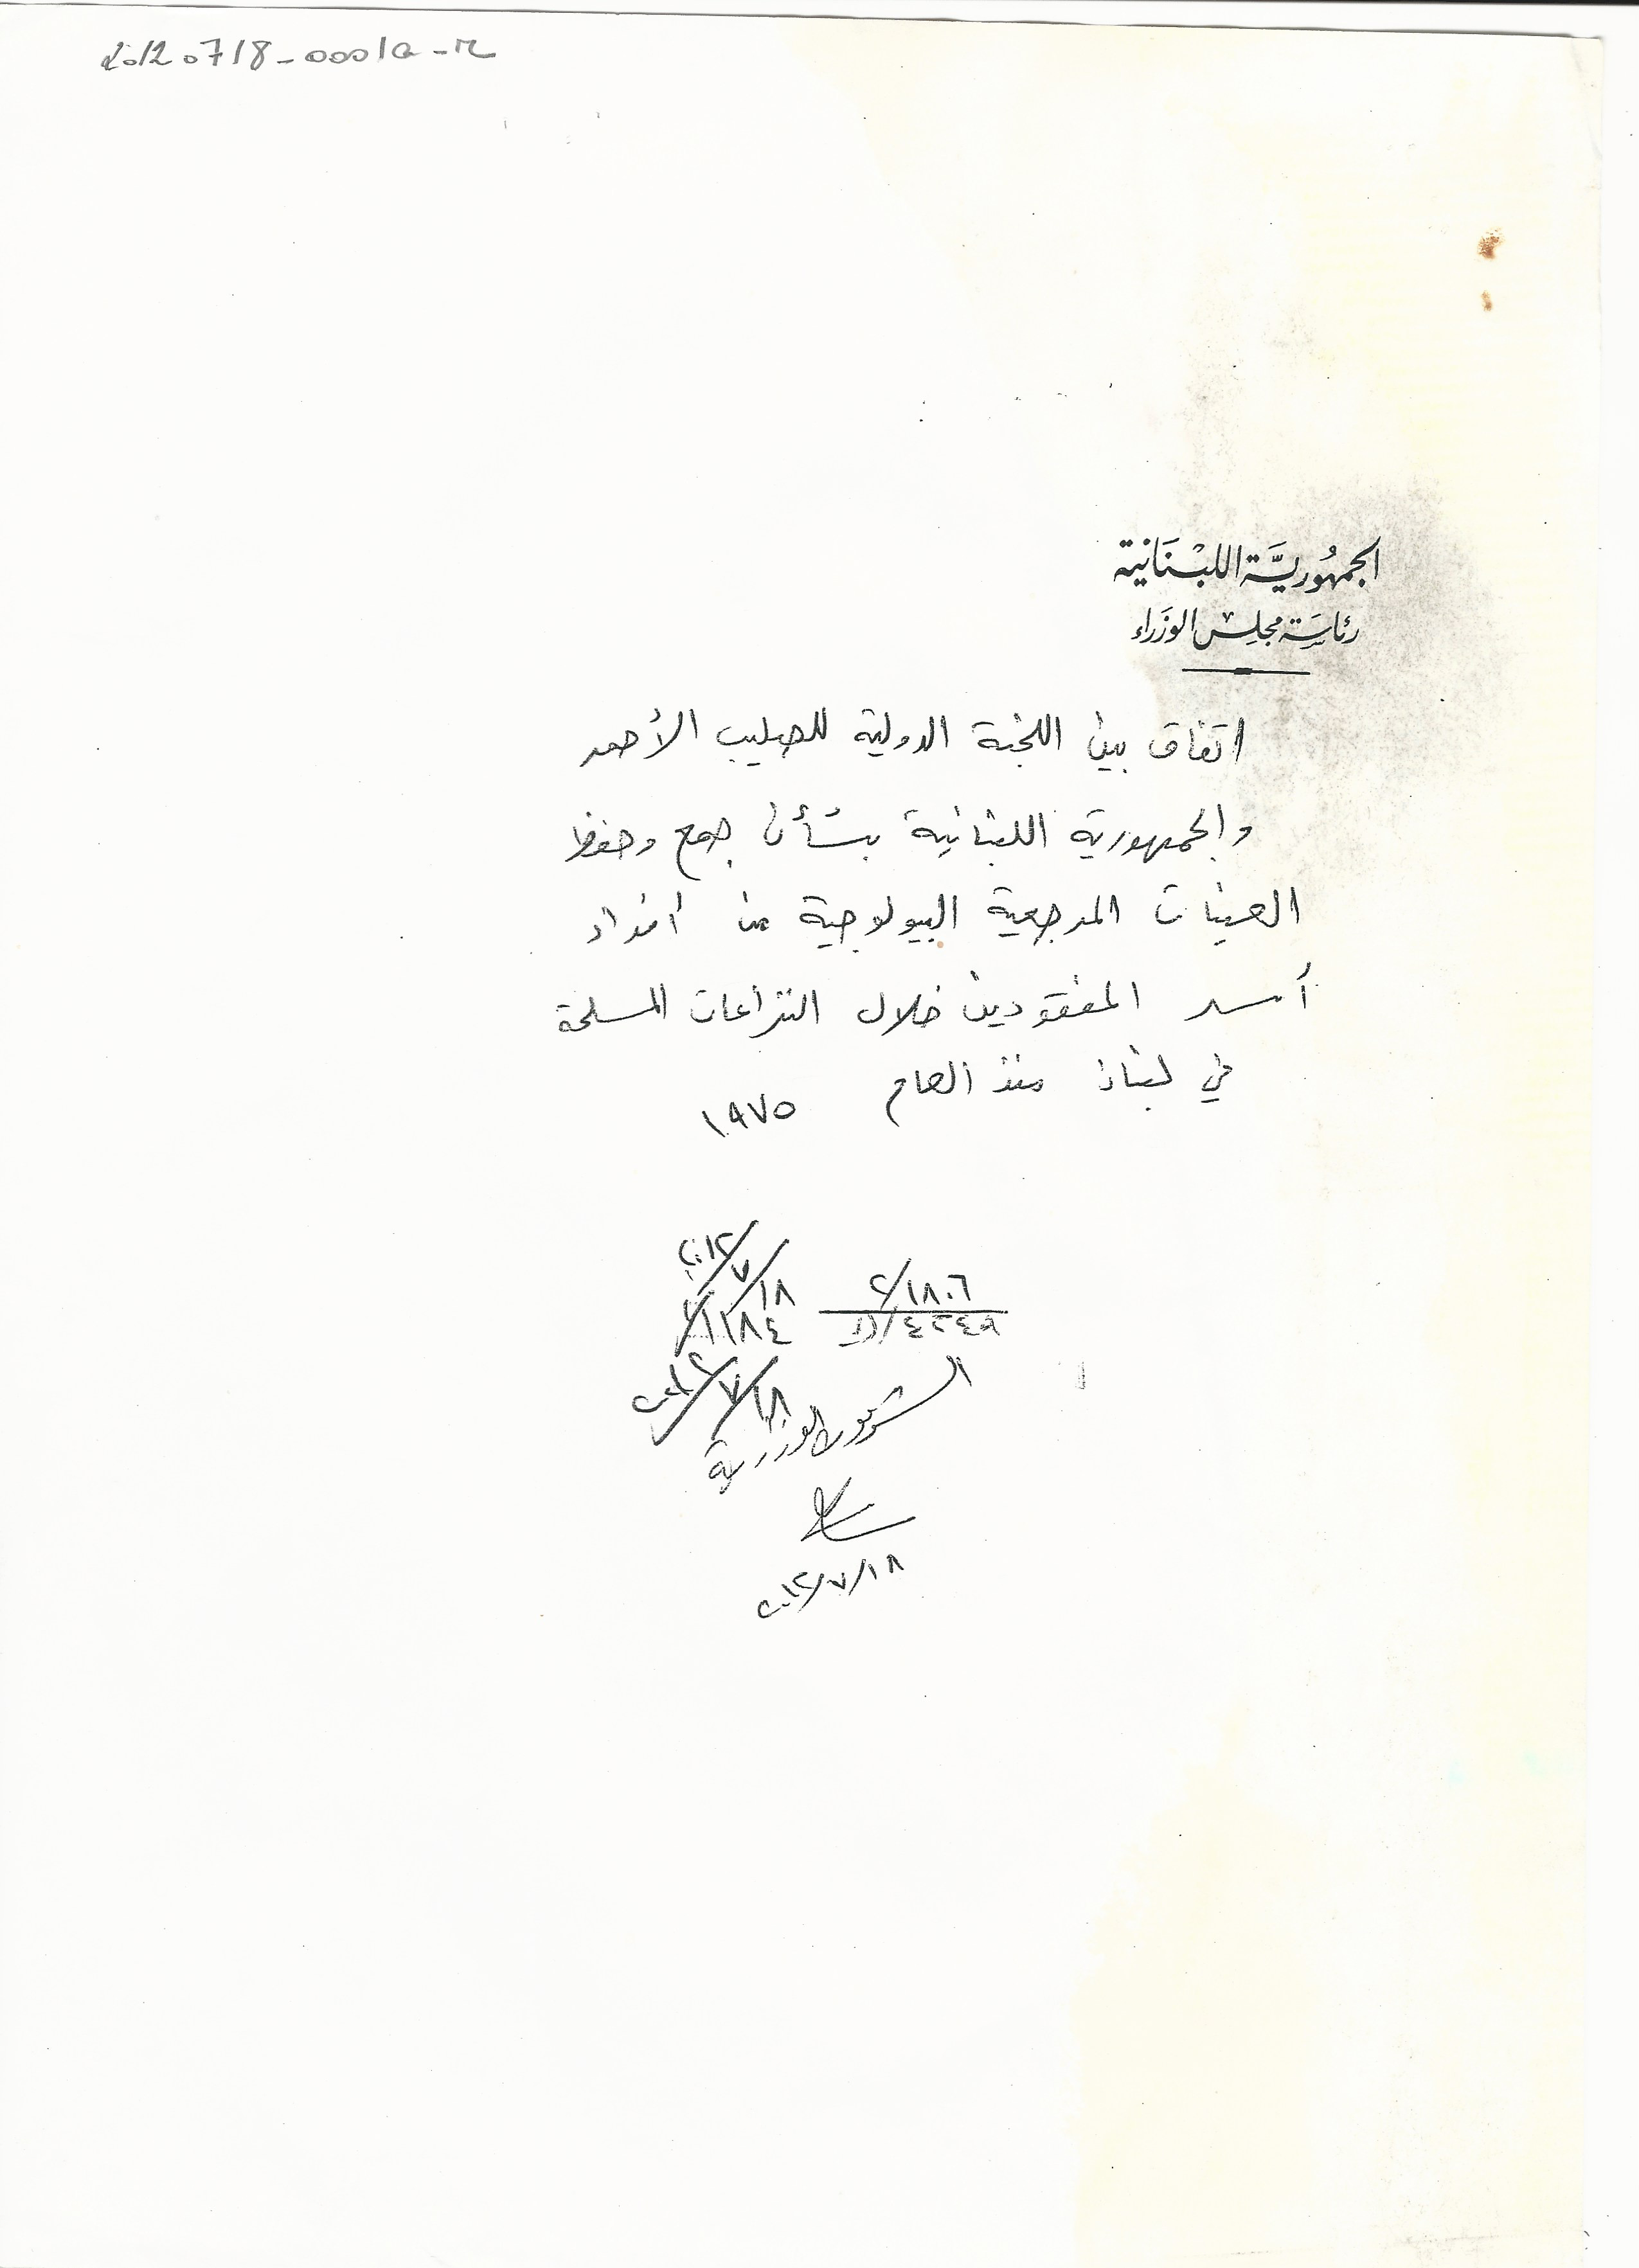 20120718-0001a-r
الجمهورية اللبنانية
رئاسة مجلس الوزراء
اتفاق بين اللجنة الدولية للصليب الأحمر
والجمهورية اللبنانية بشأن جمع وحفظ
العينات المرجعية البيولوجية من أفراد
أسر المفقودين خلال النزاعات المسلحة
في لبنان منذ العام ١٩٧٥
٢٠١٢/٧/١٨
١٨٠٦/٢
١١٨٤/
٢٠١٢/٧/١٨
الشؤون الوزارية
٢٠١٢/٧/١٨